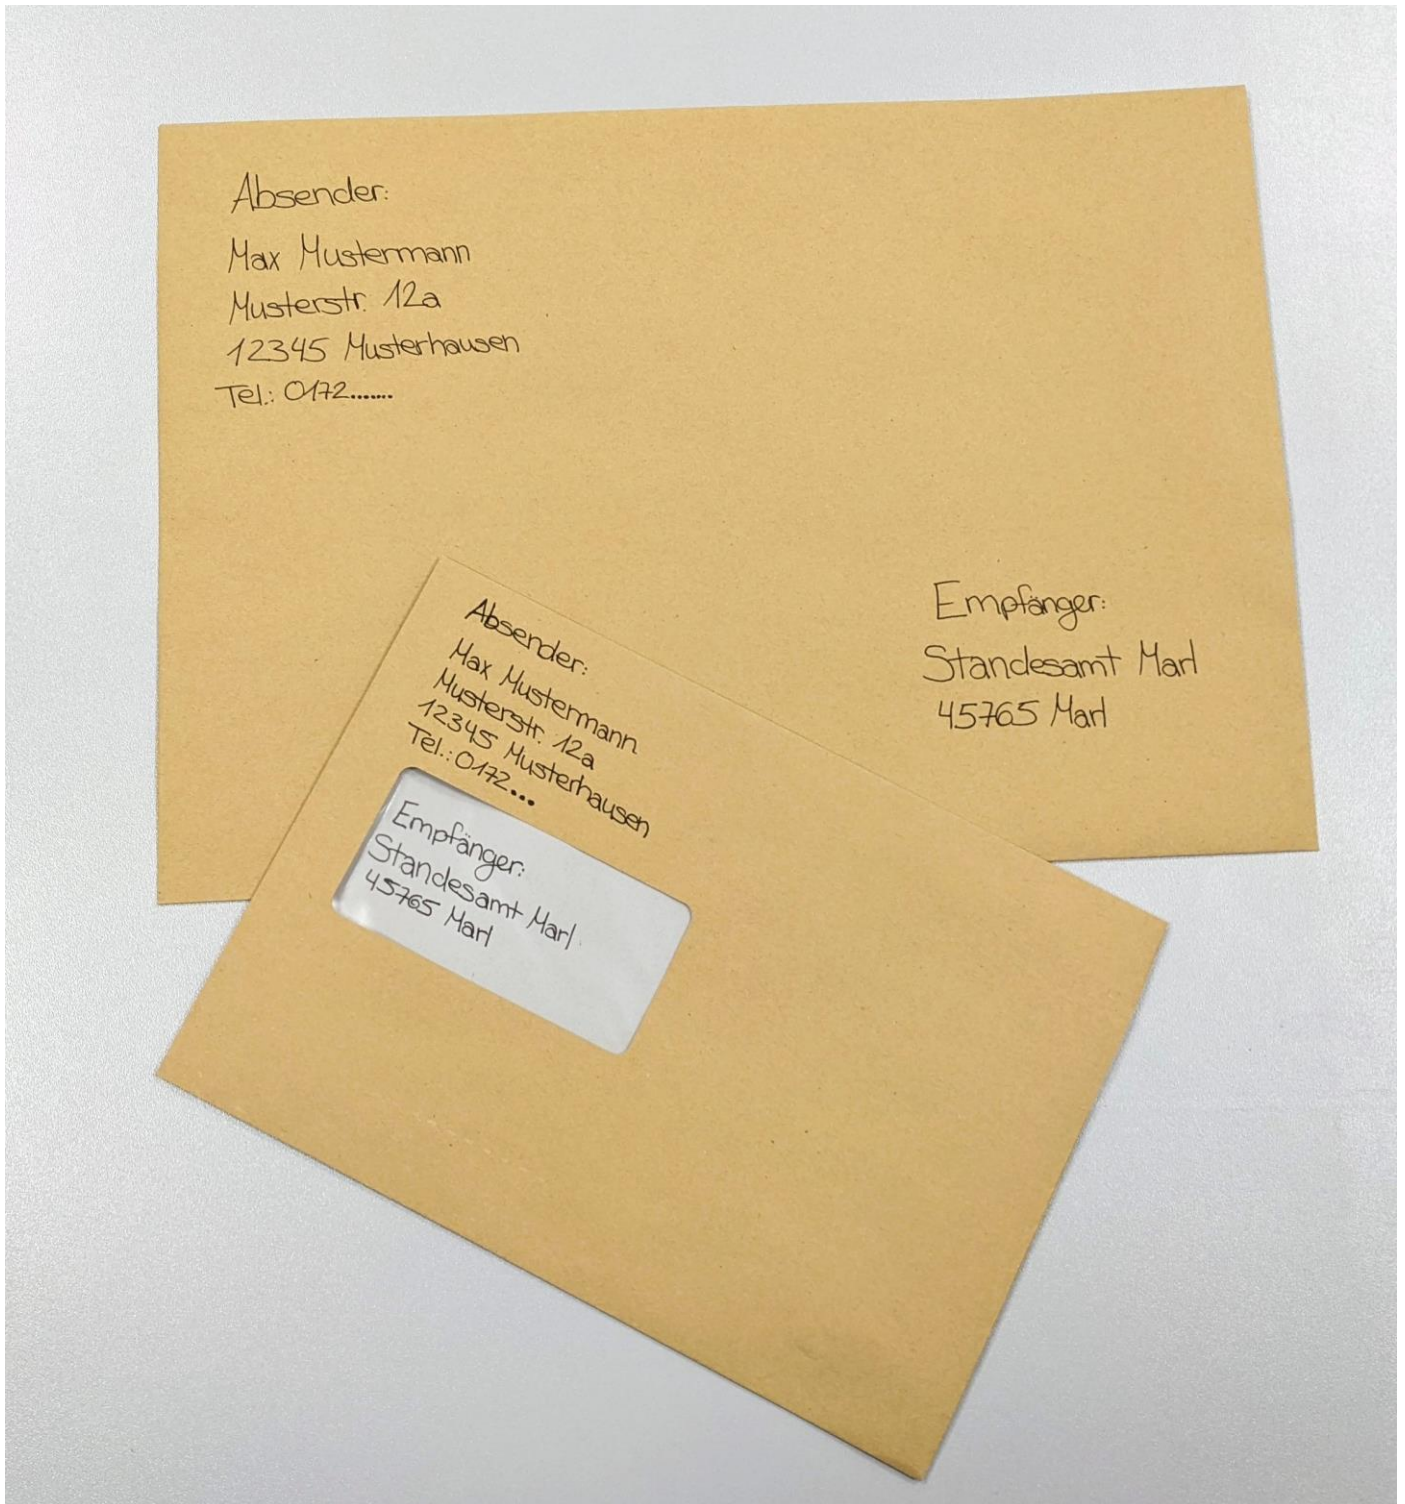 Absender:
Max Mustermann
Musterstr. 12a
12345 Musterhausen
Tel.: 0172.......
Empfänger:
Standesamt Marl
45765 Marl
Absender:
Max Mustermann
Musterstr. 12a
12345 Musterhausen
Tel.: 0172...
Empfänger:
Standesamt Marl
45765 Marl